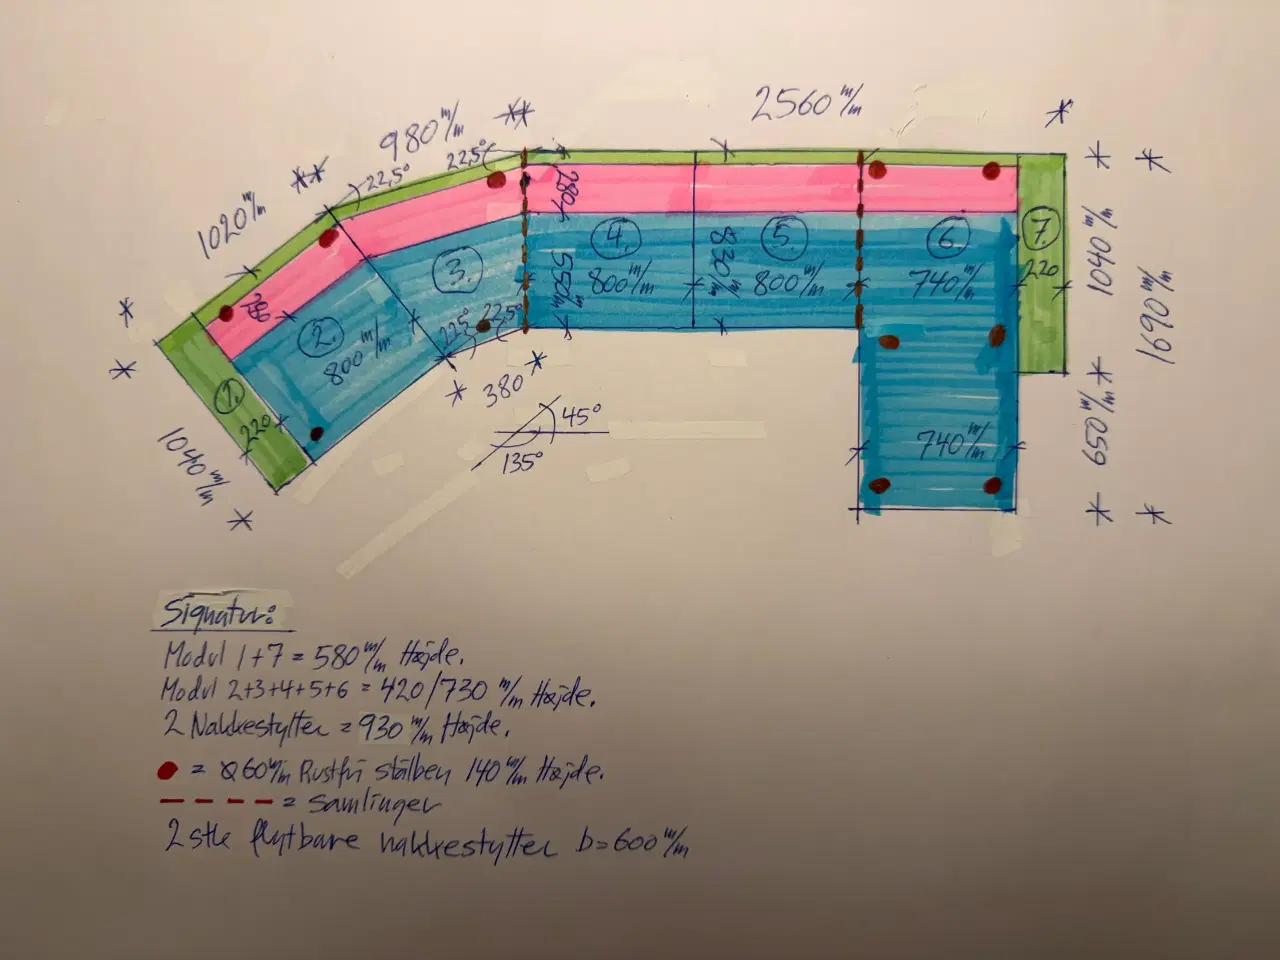 2560 m/m
980 m/m
22,5°
22,5°
1020 m/m
280
4.
5.
6.
7.
1040 m/m
1690 m/m
830 m/m
550 m/m
800 m/m
800 m/m
740 m/m
220
3.
280
2.
800 m/m
22,5°
22,5°
1.
220
380
1040 m/m
45°
135°
740 m/m
650 m/m
Signatur:
Modul 1+7 = 580 m/m Højde.
Modul 2+3+4+5+6 = 420/730 m/m Højde.
2 Nakkestytter = 930 m/m Højde.
= Ø60 m/m Rustfri stålben 140 m/m Højde.
= samlinger
2 stk flytbare nakkestytter b=600 m/m